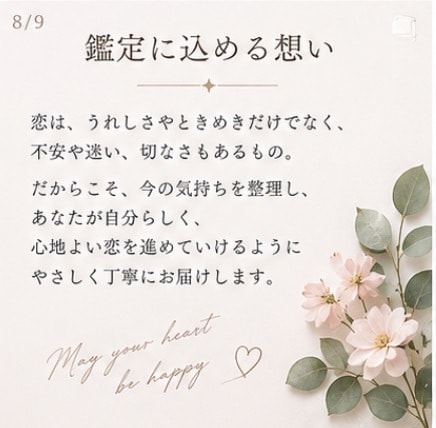 8/9
鑑定に込める想い
恋は、うれしさやときめきだけでなく、
不安や迷い、切なさもあるもの。
だからこそ、今の気持ちを整理し、
あなたが自分らしく、
心地よい恋を進めていけるように
やさしく丁寧にお届けします。
May your heart
be happy